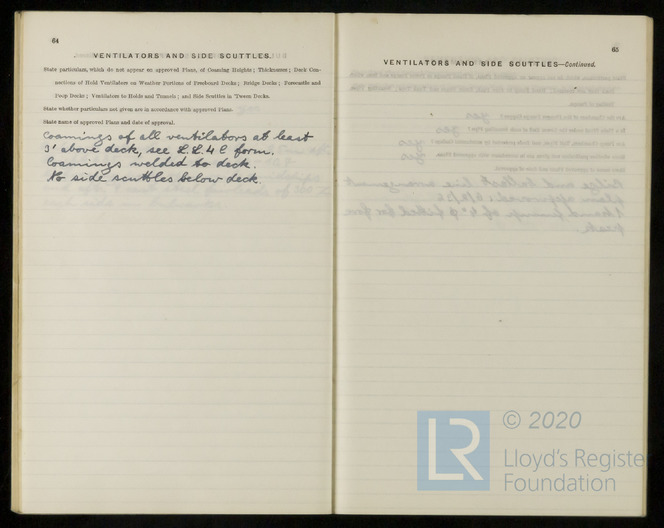 64
VENTILATORS AND SIDE SCUTTLES.
State particulars, which do not appear on approved Plans, of Coaming Heights; Thicknesses; Deck Con-
nections of Hold Ventilators on Weather Portions of Freeboard Decks; Bridge Decks; Forecastle and
Poop Decks; Ventilators to Holds and Tunnels; and Side Scuttles in 'Tween Decks.
State whether particulars not given are in accordance with approved Plans.
State name of approved Plans and date of approval.
Coamings of all ventilators at least
3' above deck, see L.L.4 C form.
Coamings welded to deck.
No side scuttles below deck.
65
VENTILATORS AND SIDE SCUTTLES—Continued.
LR
© 2020
Lloyd's Register
Foundation